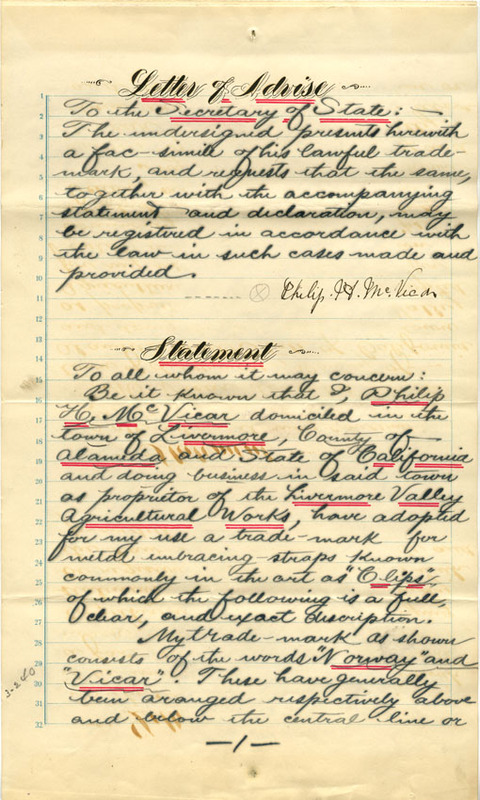 Letter of Advise
1
To the Secretary of State: —.
2
The undersigned presents herewith
3
a fac-simile of his lawful trade-
4
mark, and requests that the same,
5
together with the accompanying
6
statement and declaration, may
7
be registered in accordance with
8
the law in such cases made and
9
provided.
10
Philip. H. McVicar
11
12
13
Statement
14
To all whom it may concern:
15
Be it known that I, Philip
16
H. McVicar domiciled in the
17
town of Livermore, County of
18
Alameda and State of California
19
and doing business in said town
20
as proprietor of the Livermore Valley
21
Agricultural Works, have adopted
22
for my use a trade-mark for
23
metal embracing-straps known
24
commonly in the art as "Clips",
25
of which the following is a full,
26
clear, and exact discription.
27
My trade-mark as shown
28
consists of the words "Norway" and
29
"Vicar". These have generally
30
been aranged respectively above
31
and below the central line or
32
3-240
—1—